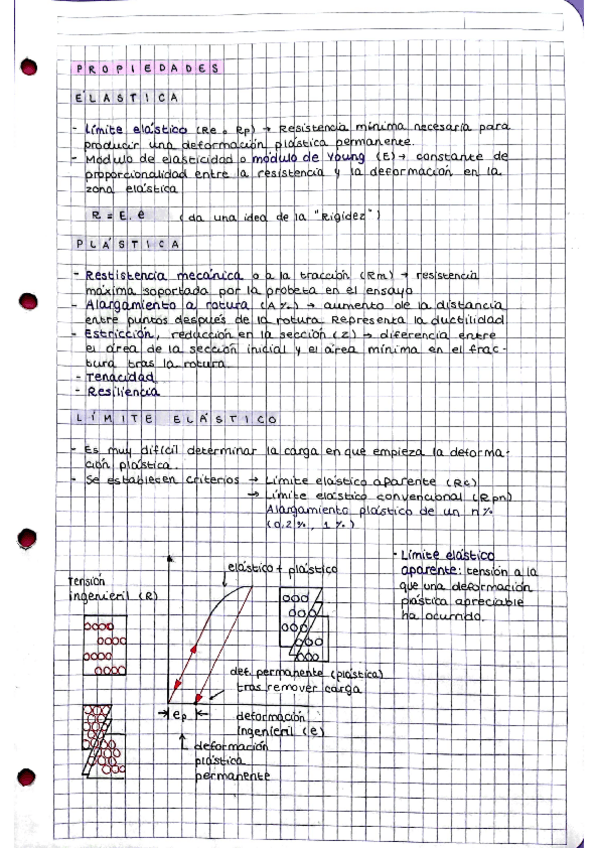 PROPIEDADES
ELÁSTICA
- Límite elástico (Re o Rp) → Resistencia mínima necesaria para
producir una deformación plástica permanente.
- Módulo de elasticidad o módulo de Young (E) → constante de
proporcionalidad entre la resistencia y la deformación en la
zona elástica
R = E. e (da una idea de la "Rigidez")
PLÁSTICA
- Restistencia mecánica o a la tracción (Rm) → resistencia
máxima soportada por la probeta en el ensayo
- Alargamiento a rotura (A%) → aumento de la distancia
entre puntos después de la rotura. Representa la ductilidad
- Estricción, reducción en la sección (Z) → diferencia entre
el área de la sección inicial y el área mínima en el frac-
tura tras la rotura.
- Tenacidad
- Resiliencia
LÍMITE ELÁSTICO
- Es muy difícil determinar la carga en que empieza la deforma-
ción plástica.
- Se establecen criterios → Límite elástico aparente (Re)
→ Límite elástico convencional (Rpn)
Alargamiento plástico de un n%
(0,2%, 1%)
- Límite elástico
aparente: tensión a la
que una deformación
plástica apreciable
ha ocurrido.
elástico + plástico
Tensión
ingenieril (R)
def. permanente (plástica)
tras remover carga
→| ep |←
deformación
ingenieril (e)
deformación
plástica
permanente